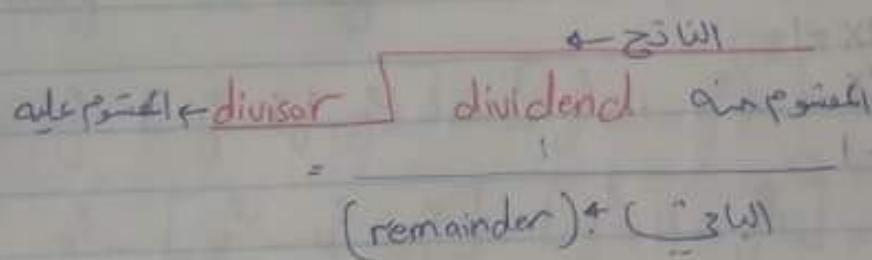 الناتج ←
المقسوم عليه ← divisor dividend المقسوم منه
=
(remainder) ← (الباقي